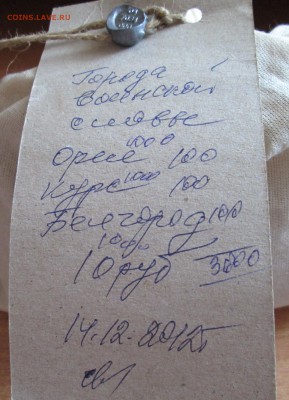 COINS.LAVE.RU
Города
Воинской
славы
1000
Орел 100
1000
Курск 100
Белгород 100
1000
10 руб 3000
14.12.2012г